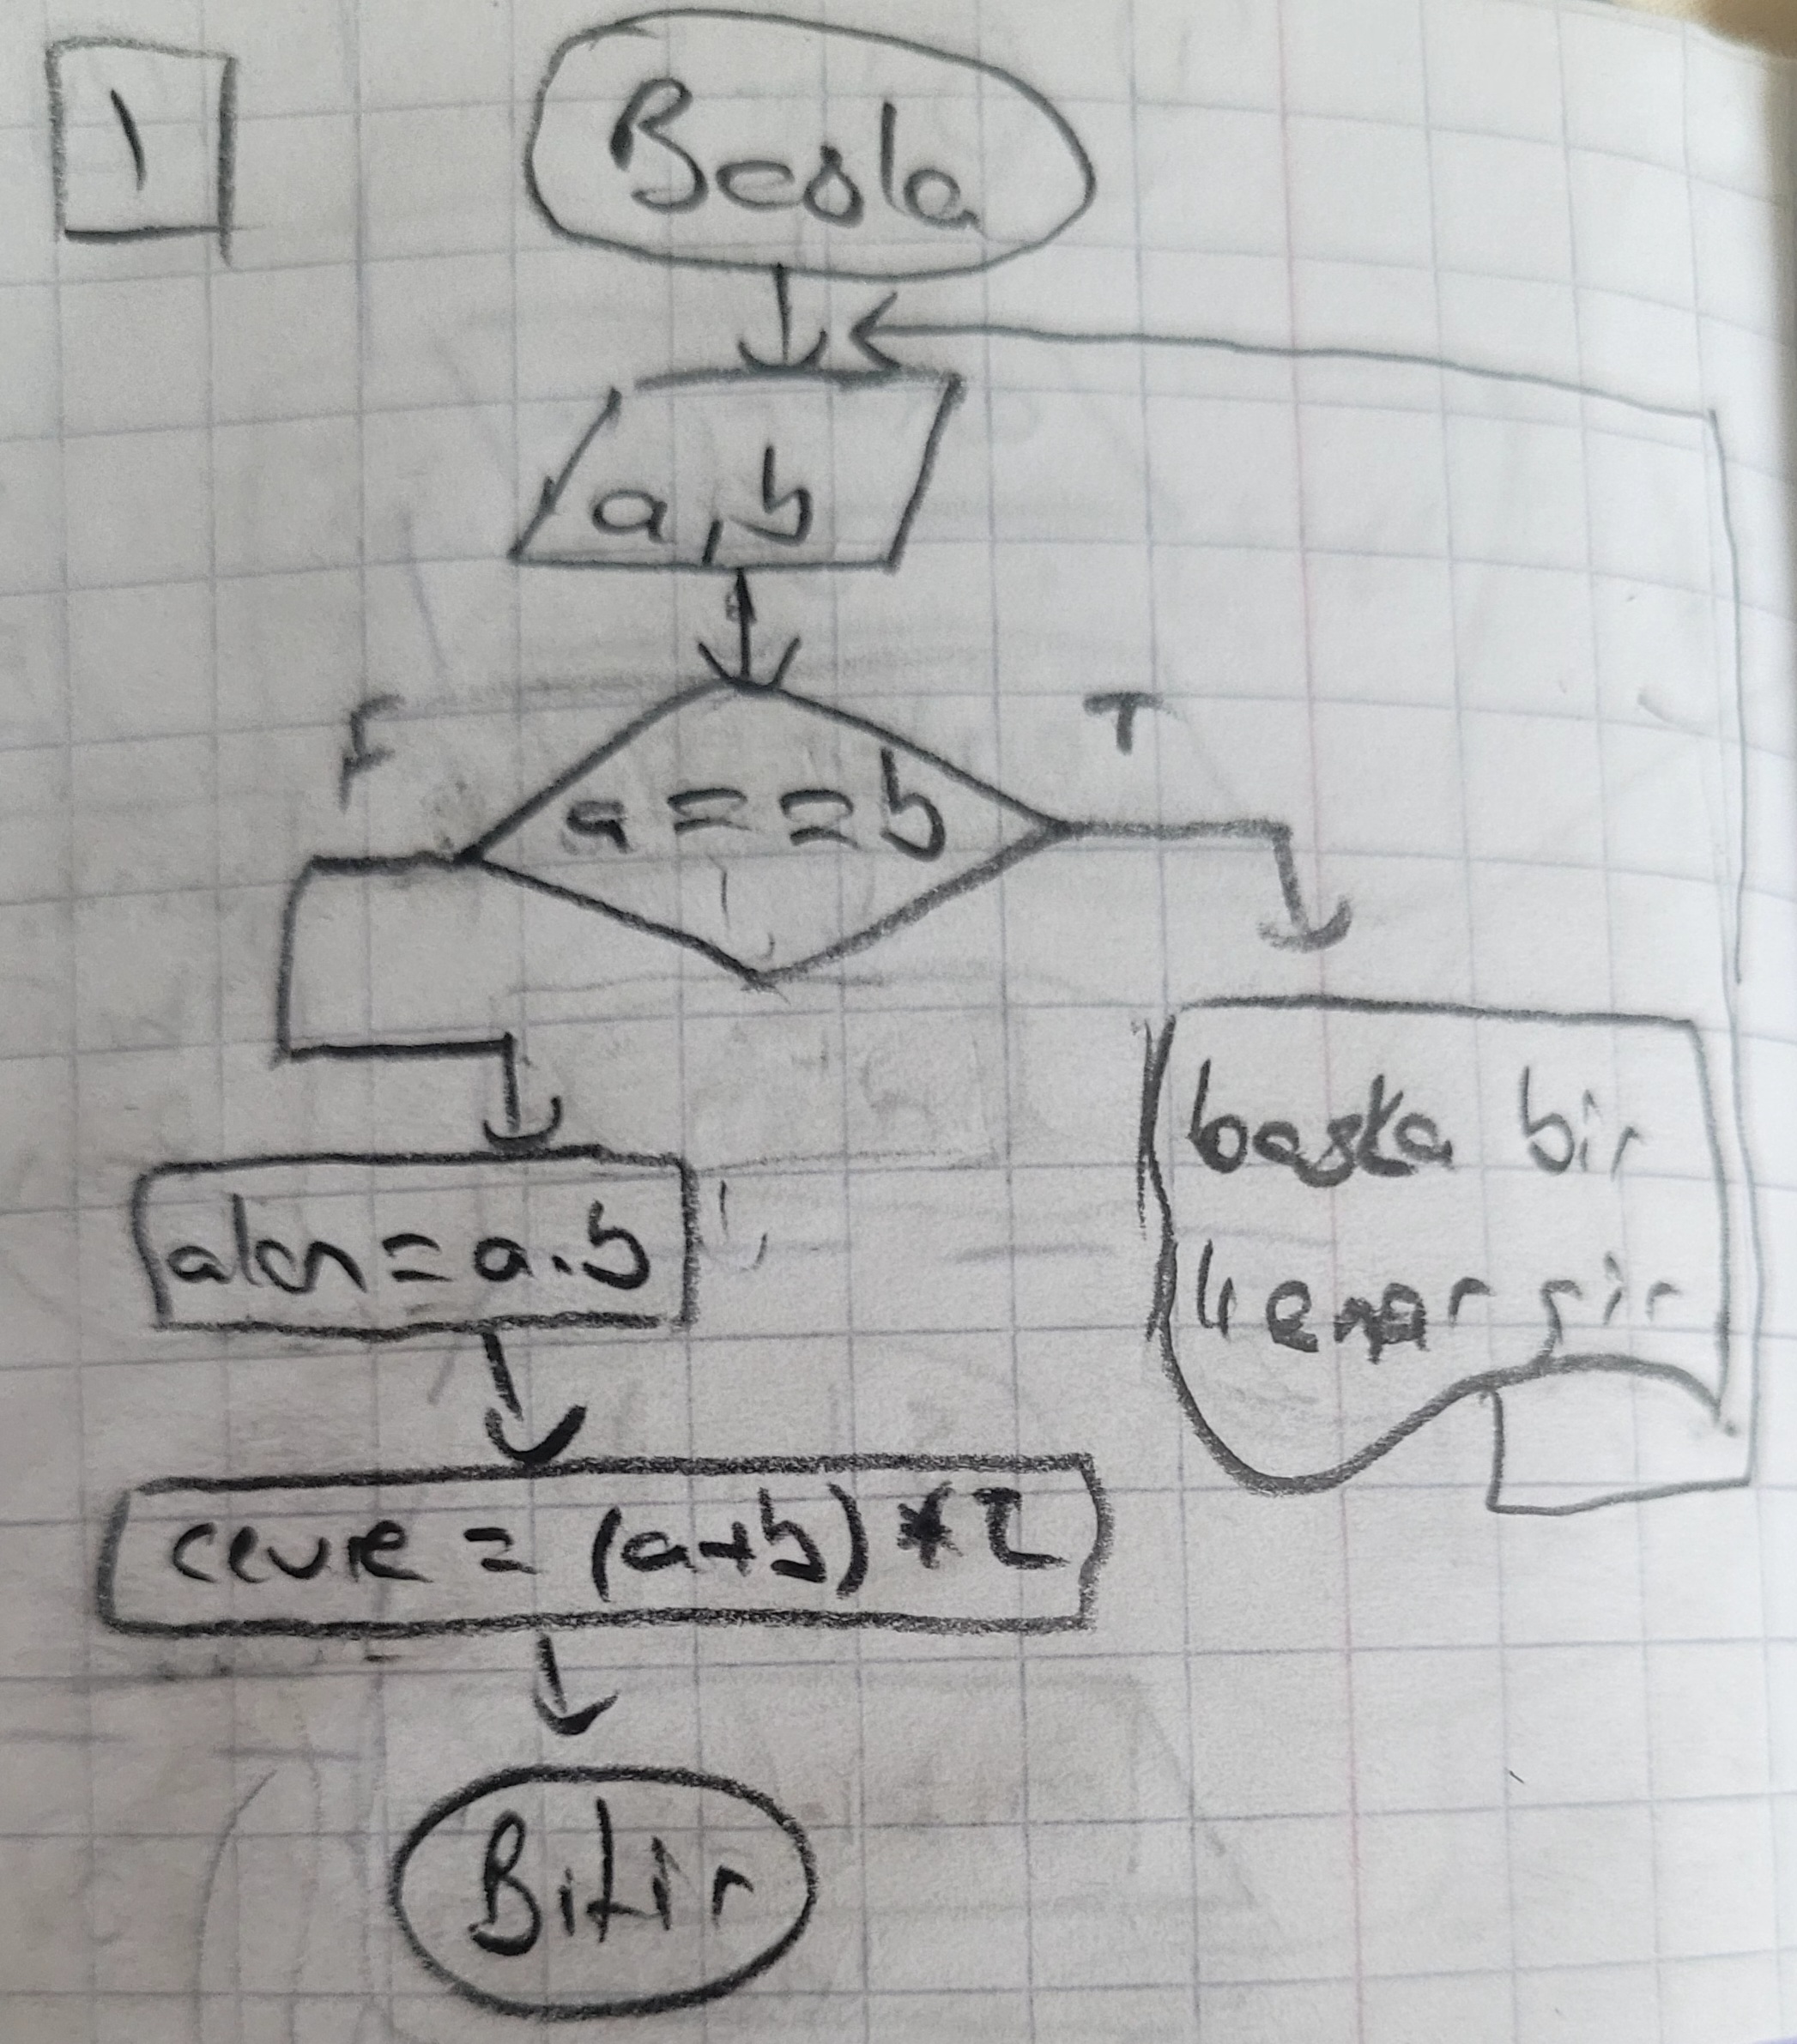 1
Başla
a, b
F
T
a = = b
başka bir
kenar gir
alan = a.b
cevre = (a+b) * 2
Bitir